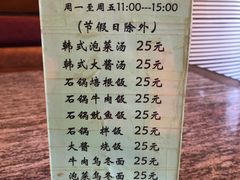 周一至周五11:00---15:00
(节假日除外)
韩式泡菜汤 25元
韩式大酱汤 25元
石锅培根饭 25元
石锅牛肉饭 25元
石锅鱿鱼饭 25元
石锅 拌饭 25元
大酱 烧饭 25元
牛肉乌冬面 25元
泡菜乌冬面 25元